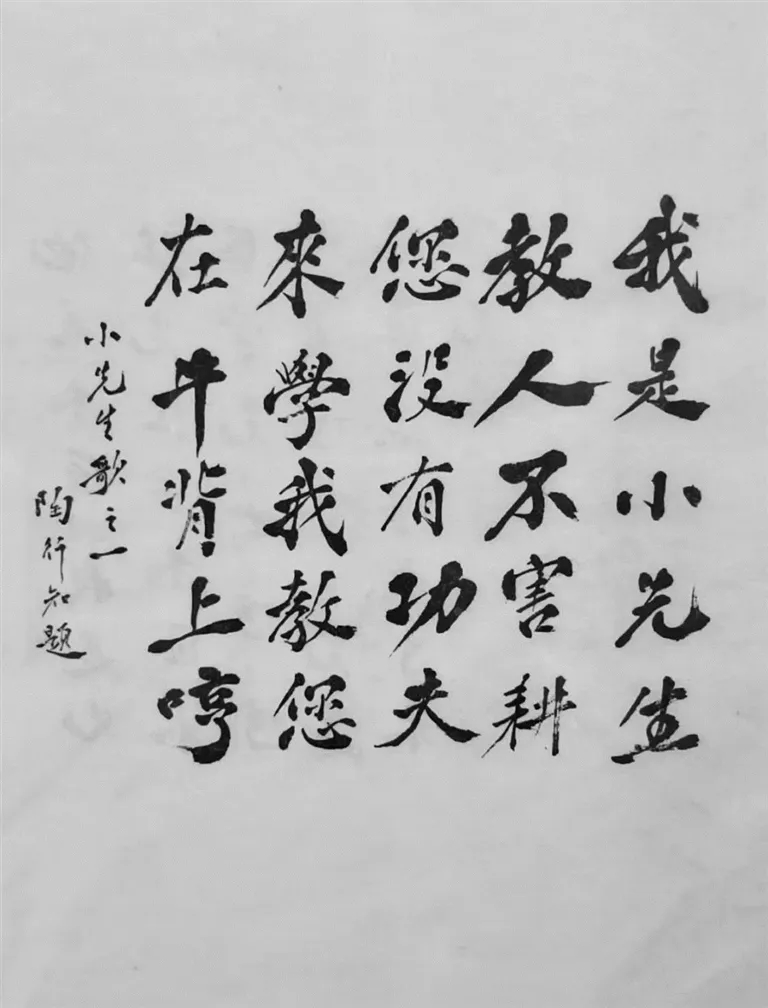 我是小先生
教人不害耕
您没有功夫
來學我教您
在牛背上哼
小先生歌之一
陶行知題